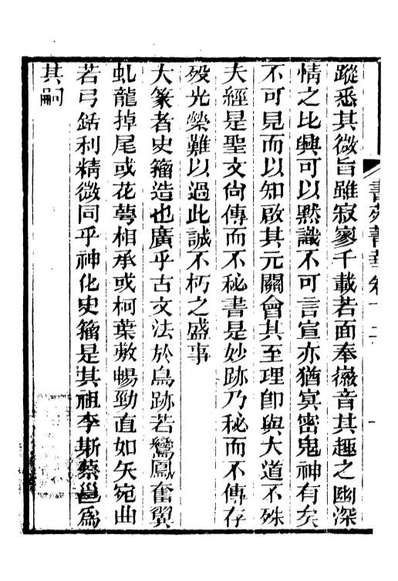 書苑菁華卷十二
蹤悉其微旨雖寂寥千載若面奉徽音其趣之幽深
情之比興可以默識不可言宣亦猶冥密鬼神有矣
不可見而以知啟其元關會其至理即與大道不殊
夫經是聖文尙傳而不秘書是妙跡乃秘而不傳存
歿光榮難以過此誠不朽之盛事
大篆者史籀造也廣乎古文法於鳥跡若鸞鳳奮翼
虬龍掉尾或花蕚相承或柯葉敷暢勁直如矢宛曲
若弓銛利精微同乎神化史籀是其祖李斯蔡邕爲
其嗣